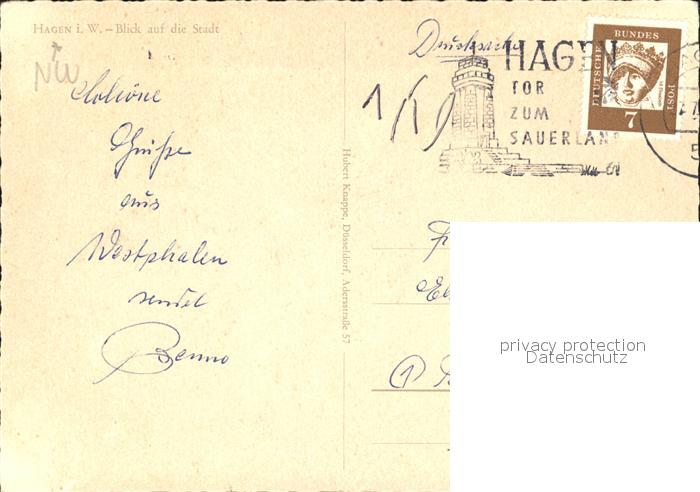 HAGEN i. W. – Blick auf die Stadt
NW
Schöne
Grüße
aus
Westphalen
sendet
Benno
Hubert Knappe, Düsseldorf, Adersstraße 57
Drucksache
HAGEN
TOR
ZUM
SAUERLAND
DEUTSCHE
BUNDES
POST
7
privacy protection
Datenschutz